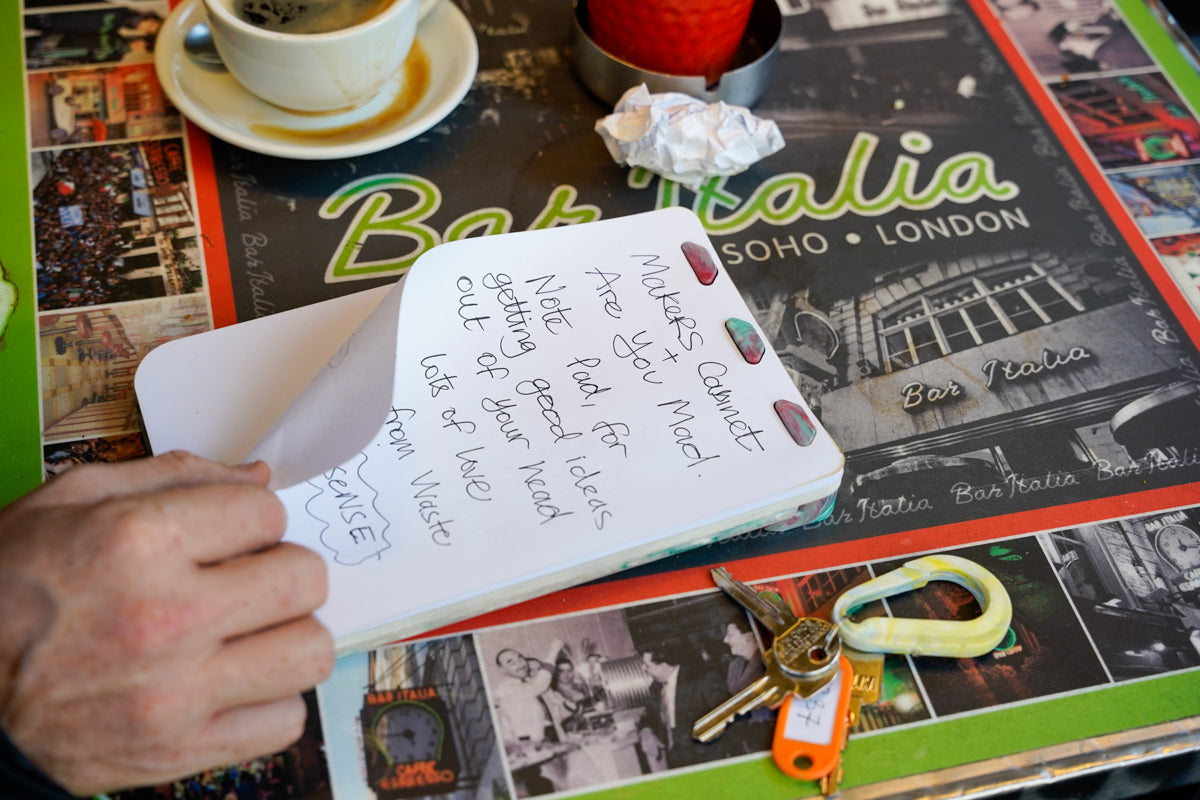 Bar Italia
SOHO • LONDON
Makers Cabinet
+
Are You Mad.
Note Pad, for
getting good ideas
out of your head
lots of love
from Waste
SENSE
Bar Italia
Bar Italia
Bar Italia
Bar Italia
Bar Italia
Bar Italia
BAR ITALIA
CAFFE
ESPRESSO